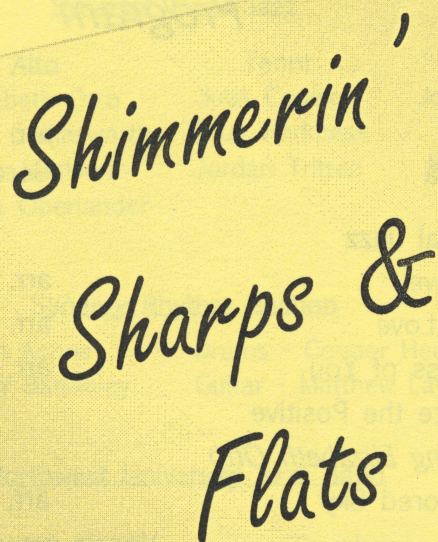 Shimmerin'
Sharps &
Flats